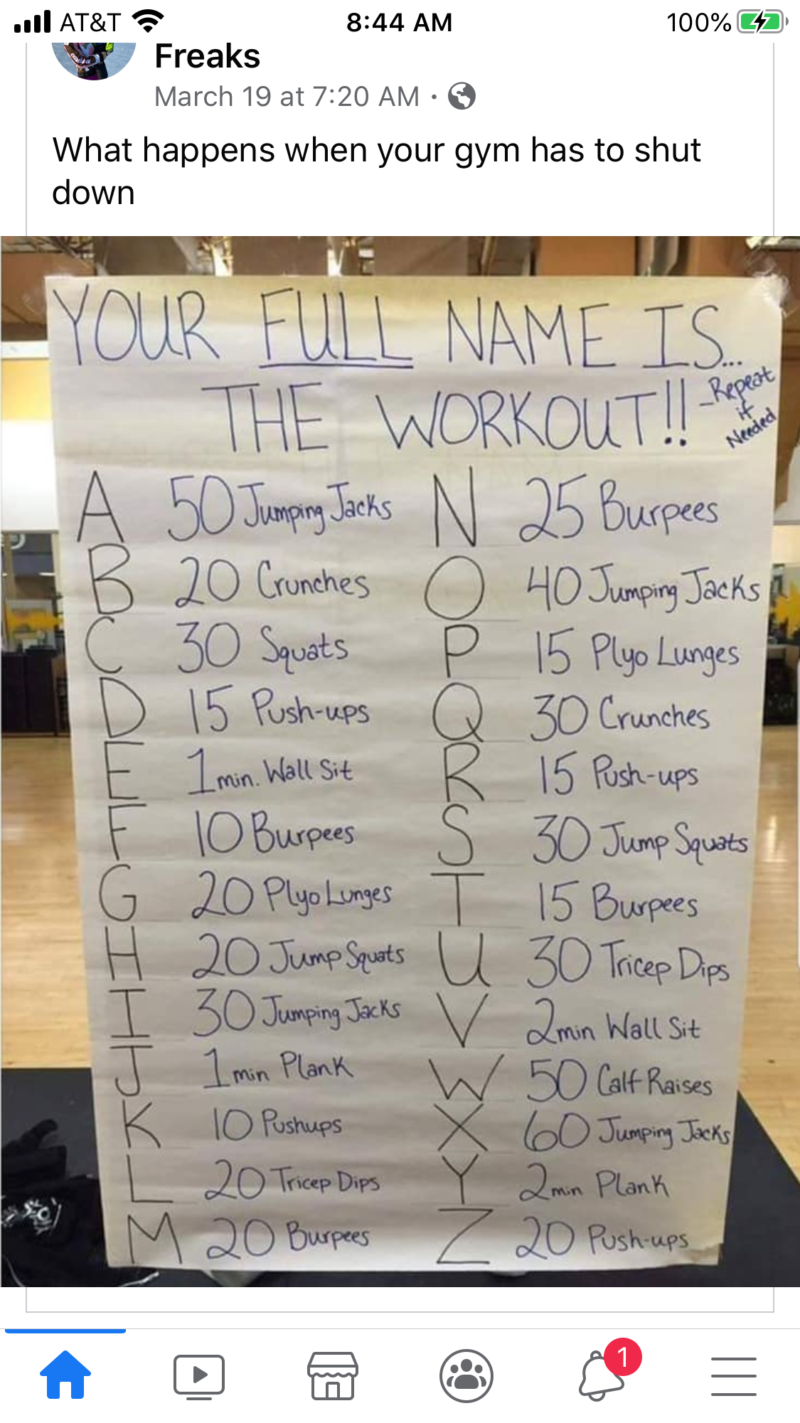 AT&T 8:44 AM 100%
Freaks
March 19 at 7:20 AM ·
What happens when your gym has to shut
down
YOUR FULL NAME IS...
THE WORKOUT!! -Repeat
if
Needed
A 50 Jumping Jacks N 25 Burpees
B 20 Crunches O 40 Jumping Jacks
C 30 Squats P 15 Plyo Lunges
D 15 Push-ups Q 30 Crunches
E 1 min. Wall Sit R 15 Push-ups
F 10 Burpees S 30 Jump Squats
G 20 Plyo Lunges T 15 Burpees
H 20 Jump Squats U 30 Tricep Dips
I 30 Jumping Jacks V 2 min Wall Sit
J 1 min Plank W 50 Calf Raises
K 10 Pushups X 60 Jumping Jacks
L 20 Tricep Dips Y 2 min Plank
M 20 Burpees Z 20 Push-ups
1